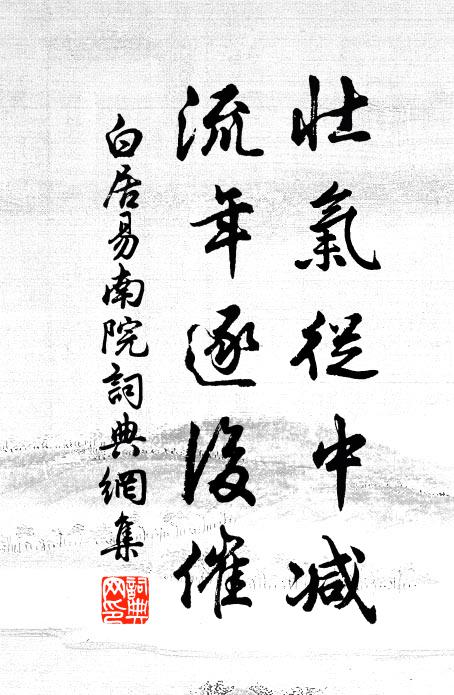 壯氣從中減
流年逐後催
白居易南院詞典網集
詞典
网印